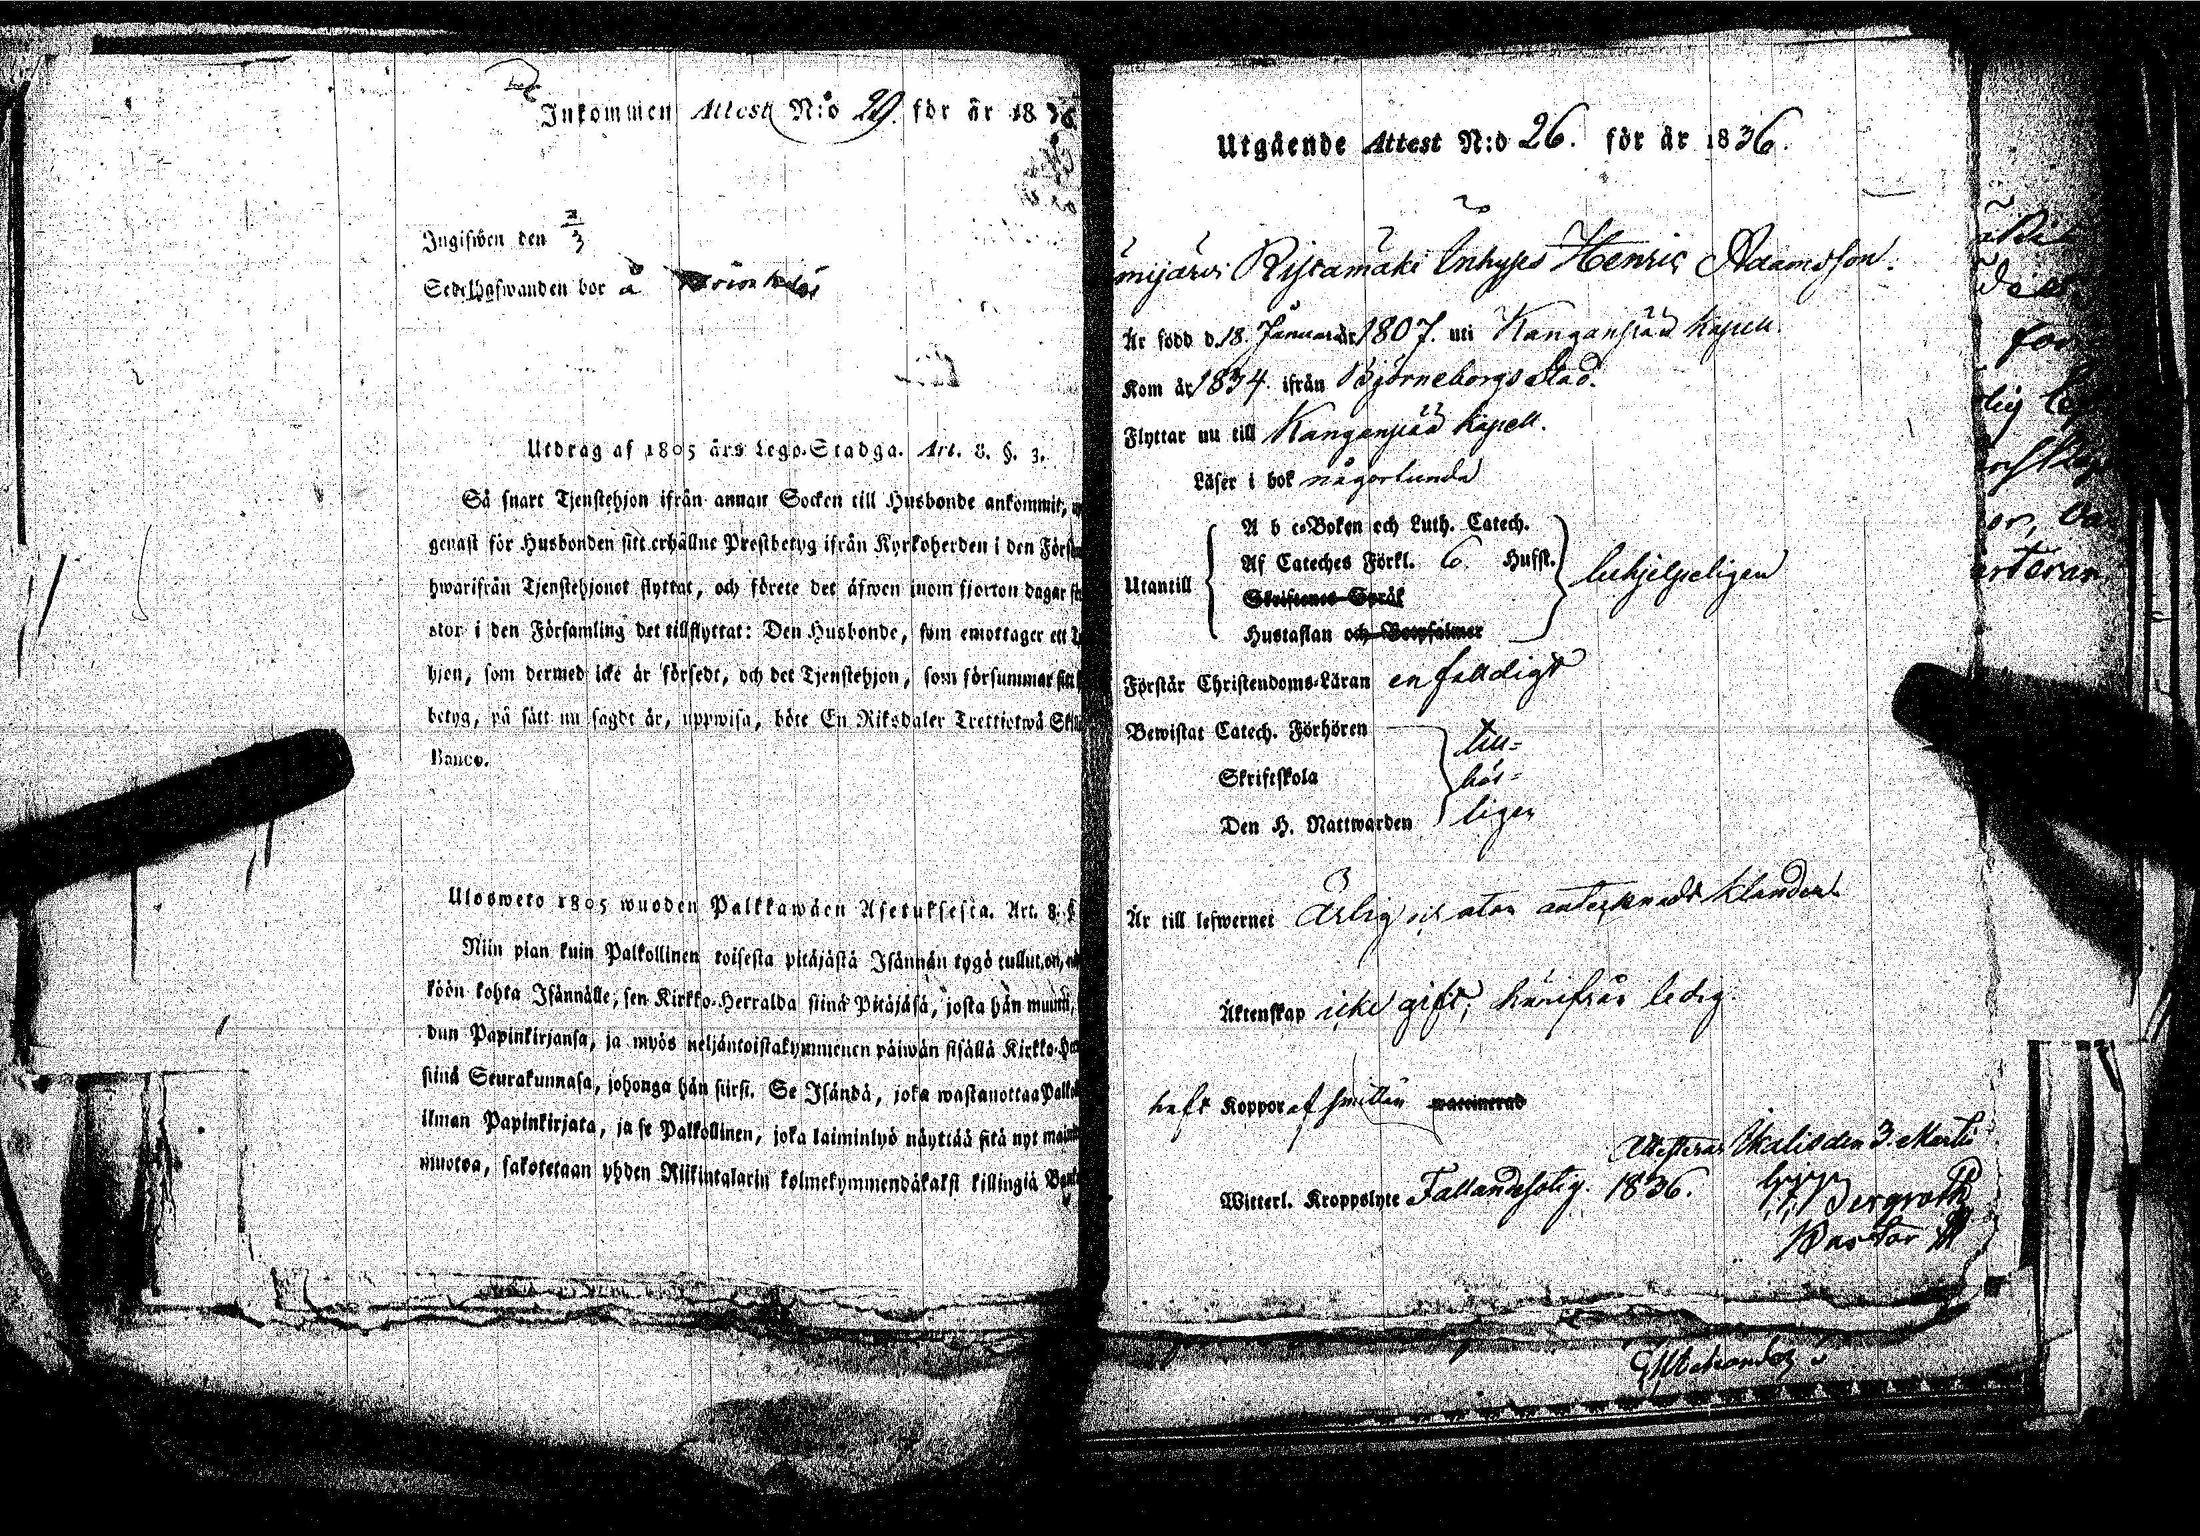 Inkommen Attest N:o 29. för år 1836
Ingifwen den 2/3
Sedelhafwanden bor å
Utdrag af 1805 års Lego-Stadga. Art. 8. §. 3.
Så snart Tjenstehjon ifrån annan Socken till Husbonde ankommit,
genast för Husbonden sitt erhållne Prestbetyg ifrån Kyrkoherden i den
hwarifrån Tjenstehjonet flyttat, och förete det äfwen inom fjorton dagar
stor i den Församling det tillflyttat: Den Husbonde, som emottager ett
hjon, som dermed icke är försedt, och det Tjenstehjon, som försummar sitt
betyg, på sätt nu sagdt är, uppwisa, böte En Riksdaler Trettiotwå
Banco.
Ulosweto 1805 wuoden Palkkawäen Asetuksesta. Art. 8. §
Niin pian kuin Palkollinen toisesta pitäjästä Isännän tygö tullut on,
köön kohta Isännälle, sen Kirkko-Herralda siinä Pitäjäsä, josta hän muutti,
dun Papinkirjansa, ja myös neljäntoistakymmenen päiwän sisällä
siinä Seurakunnasa, johonga hän siirsi. Se Isändä, joka wastanottaa
ilman Papinkirjata, ja se Palkollinen, joka laiminlyö näyttää sitä nyt
muotoa, sakotetaan yhden Riikintalarin kolmekymmendäkaksi killingiä
Utgående Attest N:o 26. för år 1836.
mijärvi Ristamäki Inhyses Henric Adamsson.
Är född d. 18. Januari år 1807. uti Kangasjää Kapell
Kom år 1834. ifrån Björneborgs Stad.
Flyttar nu till Kapell.
Läser i bok någorlunda
A b c-Boken och Luth. Catech.
Af Cateches Förkl. 6. Hufst.
Utantill
behjelpeligen
Skriftenes Språk
Hustaflan och Botpsalmer
Förstår Christendoms-Läran enfaldigt
Bewistat Catech. Förhören
Skriftskola
Den H. Nattwarden
till=
bör=
ligen
Är till lefwernet Ärlig och utan antecknadt klander.
Äktenskap icke gift, härifrån ledig.
haft Koppor af smittan waccinerad
Attesteras Ikalis den 3. Martii
Witterl. Kroppslyte Fallandesotig. 1836.
Bergroth
Pastor